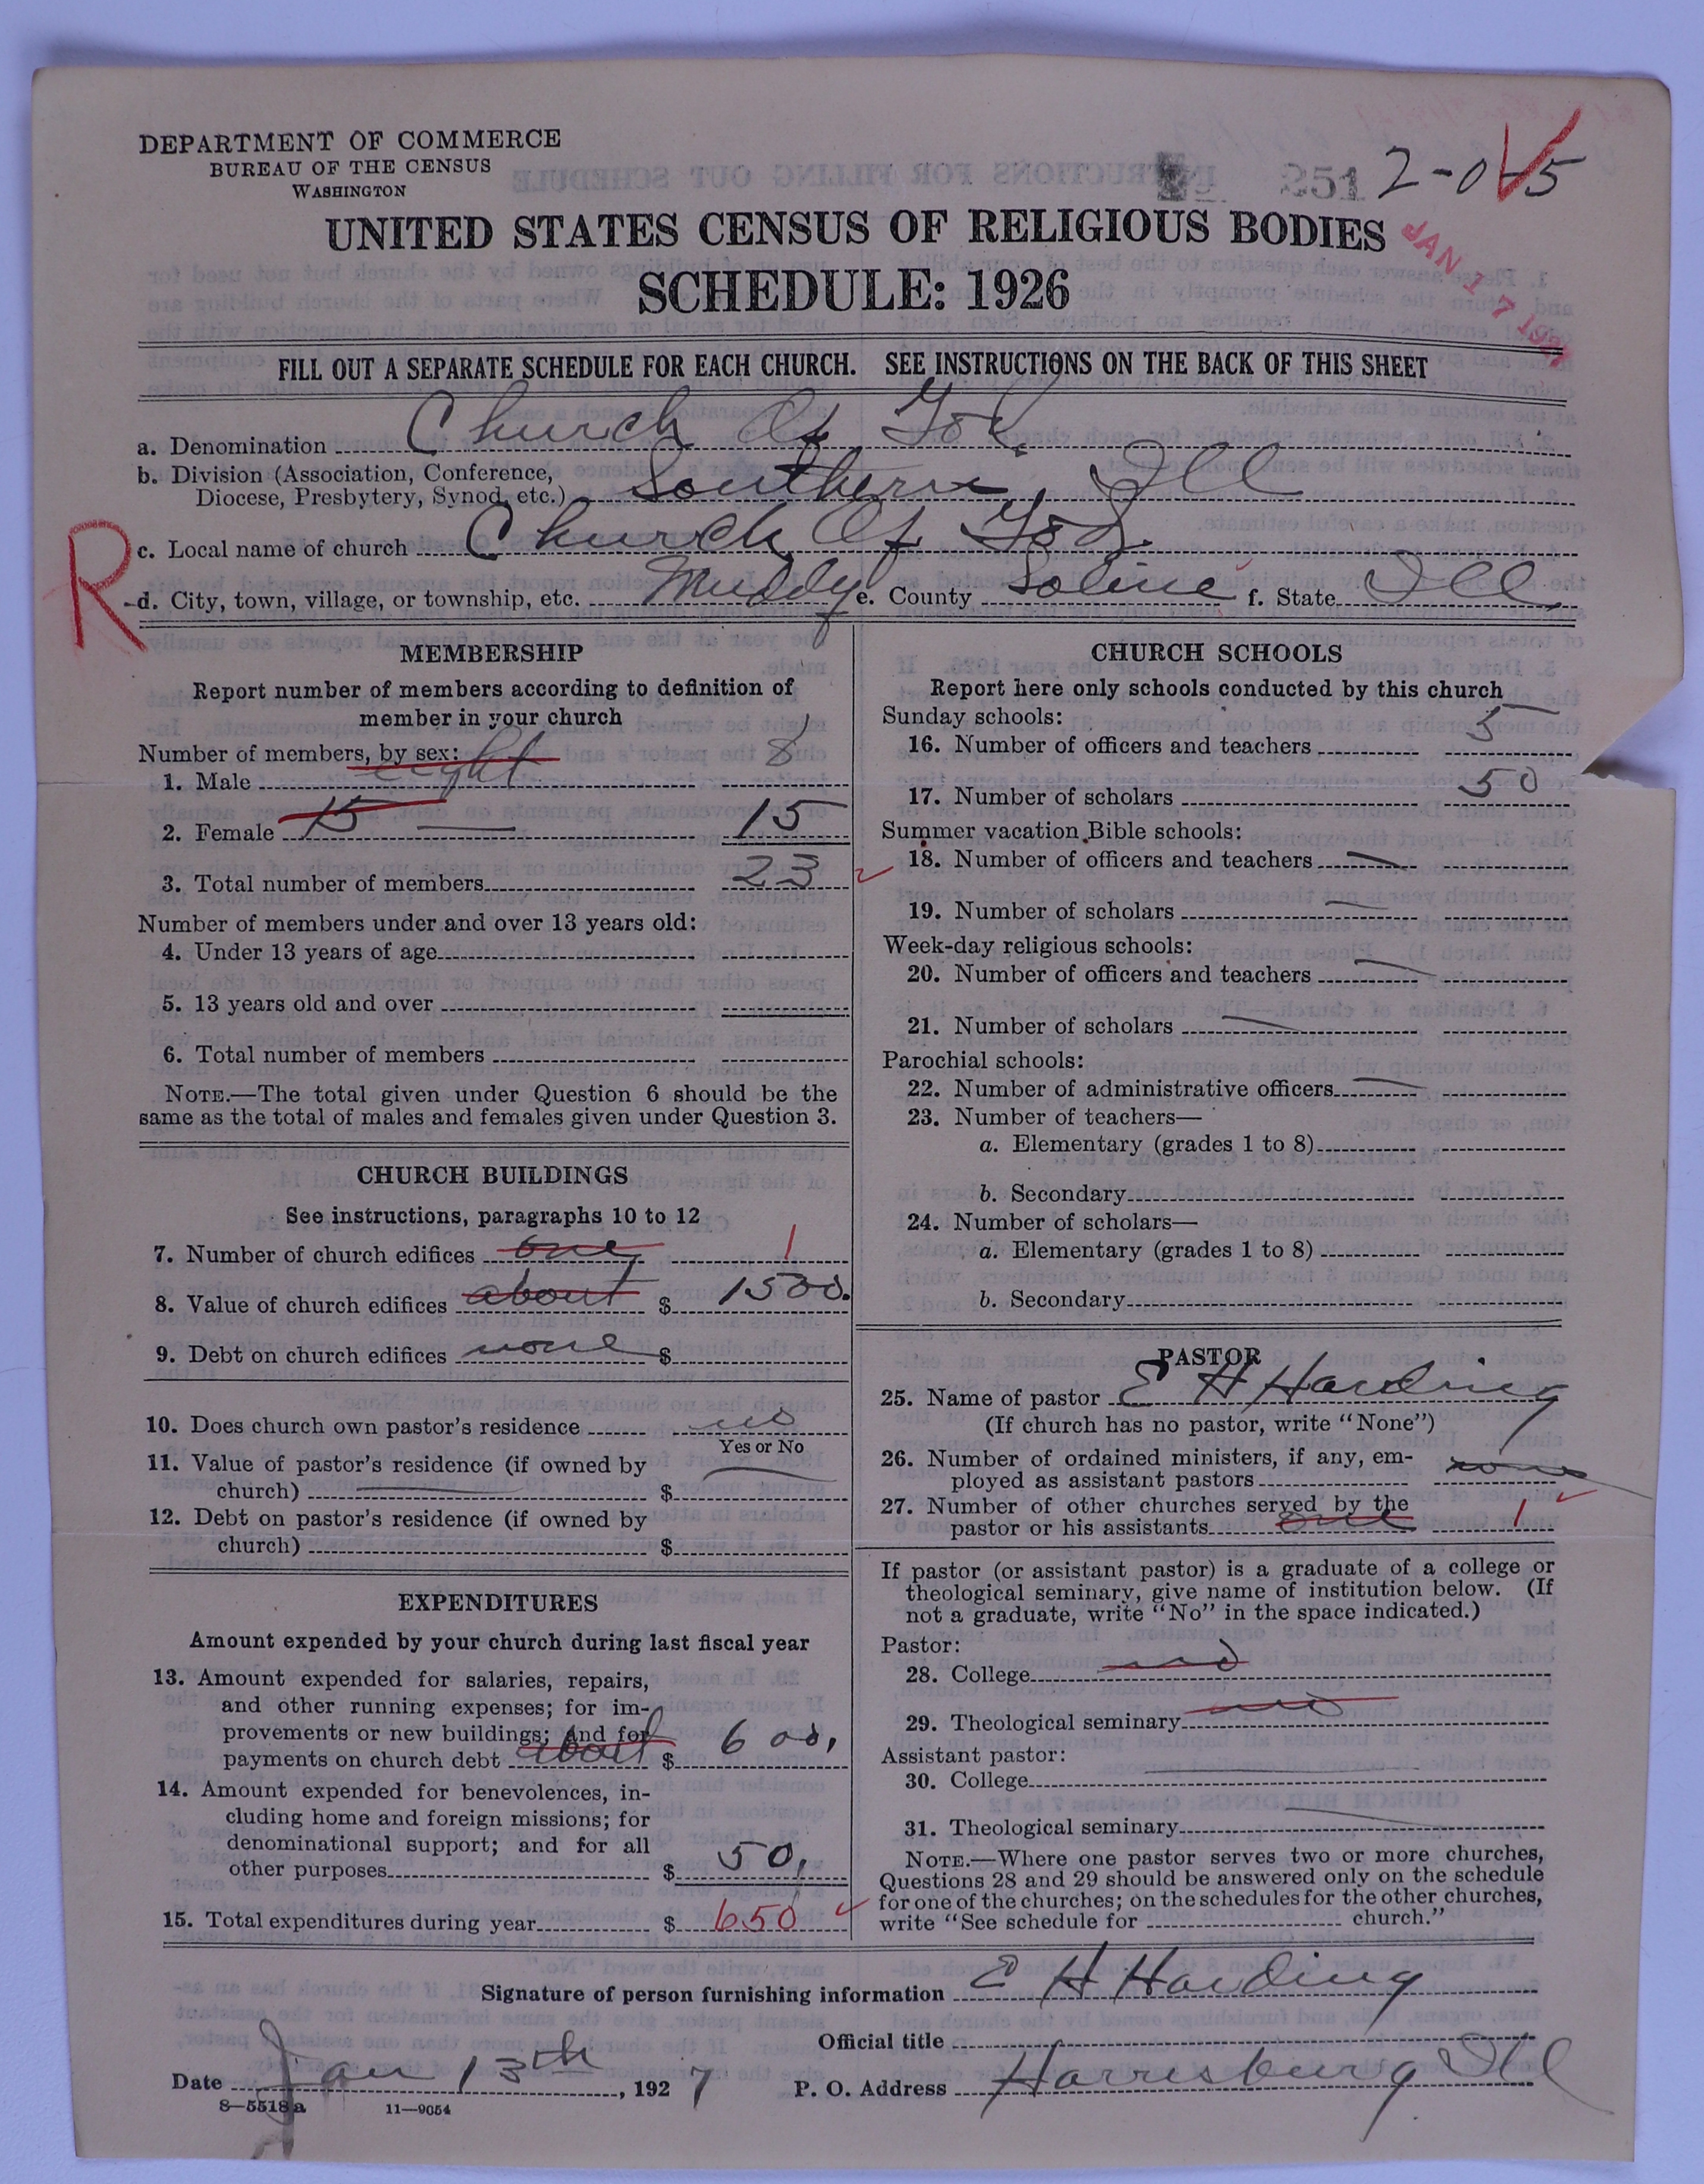 DEPARTMENT OF COMMERCE
BUREAU OF THE CENSUS
WASHINGTON
251 2-0-5
UNITED STATES CENSUS OF RELIGIOUS BODIES
JAN 17 192
SCHEDULE: 1926
FILL OUT A SEPARATE SCHEDULE FOR EACH CHURCH. SEE INSTRUCTIONS ON THE BACK OF THIS SHEET
a. Denomination Church Of God.
b. Division (Association, Conference,
Diocese, Presbytery, Synod, etc.) Southern, Ill
c. Local name of church Church Of God.
R
d. City, town, village, or township, etc. Muddy e. County Soline f. State Ill,
MEMBERSHIP
Report number of members according to definition of
member in your church
Number of members, by sex:
1. Male eight 8
2. Female 15 15
3. Total number of members 23
Number of members under and over 13 years old:
4. Under 13 years of age
5. 13 years old and over
6. Total number of members
NOTE.—The total given under Question 6 should be the
same as the total of males and females given under Question 3.
CHURCH BUILDINGS
See instructions, paragraphs 10 to 12
7. Number of church edifices one 1
8. Value of church edifices about $ 1500.
9. Debt on church edifices none $
10. Does church own pastor's residence no
Yes or No
11. Value of pastor's residence (if owned by
church) $
12. Debt on pastor's residence (if owned by
church) $
EXPENDITURES
Amount expended by your church during last fiscal year
13. Amount expended for salaries, repairs,
and other running expenses; for im-
provements or new buildings; and for
payments on church debt about $ 600,
14. Amount expended for benevolences, in-
cluding home and foreign missions; for
denominational support; and for all
other purposes $ 50,
15. Total expenditures during year $ 650
CHURCH SCHOOLS
Report here only schools conducted by this church
Sunday schools:
16. Number of officers and teachers 5
17. Number of scholars 50
Summer vacation Bible schools:
18. Number of officers and teachers
19. Number of scholars
Week-day religious schools:
20. Number of officers and teachers
21. Number of scholars
Parochial schools:
22. Number of administrative officers
23. Number of teachers—
a. Elementary (grades 1 to 8)
b. Secondary
24. Number of scholars—
a. Elementary (grades 1 to 8)
b. Secondary
PASTOR
25. Name of pastor E H Harding
(If church has no pastor, write "None")
26. Number of ordained ministers, if any, em-
ployed as assistant pastors none
27. Number of other churches served by the
pastor or his assistants one 1
If pastor (or assistant pastor) is a graduate of a college or
theological seminary, give name of institution below. (If
not a graduate, write "No" in the space indicated.)
Pastor:
28. College no
29. Theological seminary no
Assistant pastor:
30. College
31. Theological seminary
NOTE.—Where one pastor serves two or more churches,
Questions 28 and 29 should be answered only on the schedule
for one of the churches; on the schedules for the other churches,
write "See schedule for church."
Signature of person furnishing information E H Harding
Official title
Date Jan 13th, 1927 P. O. Address Harrisburg Ill
8—5518a 11—9054